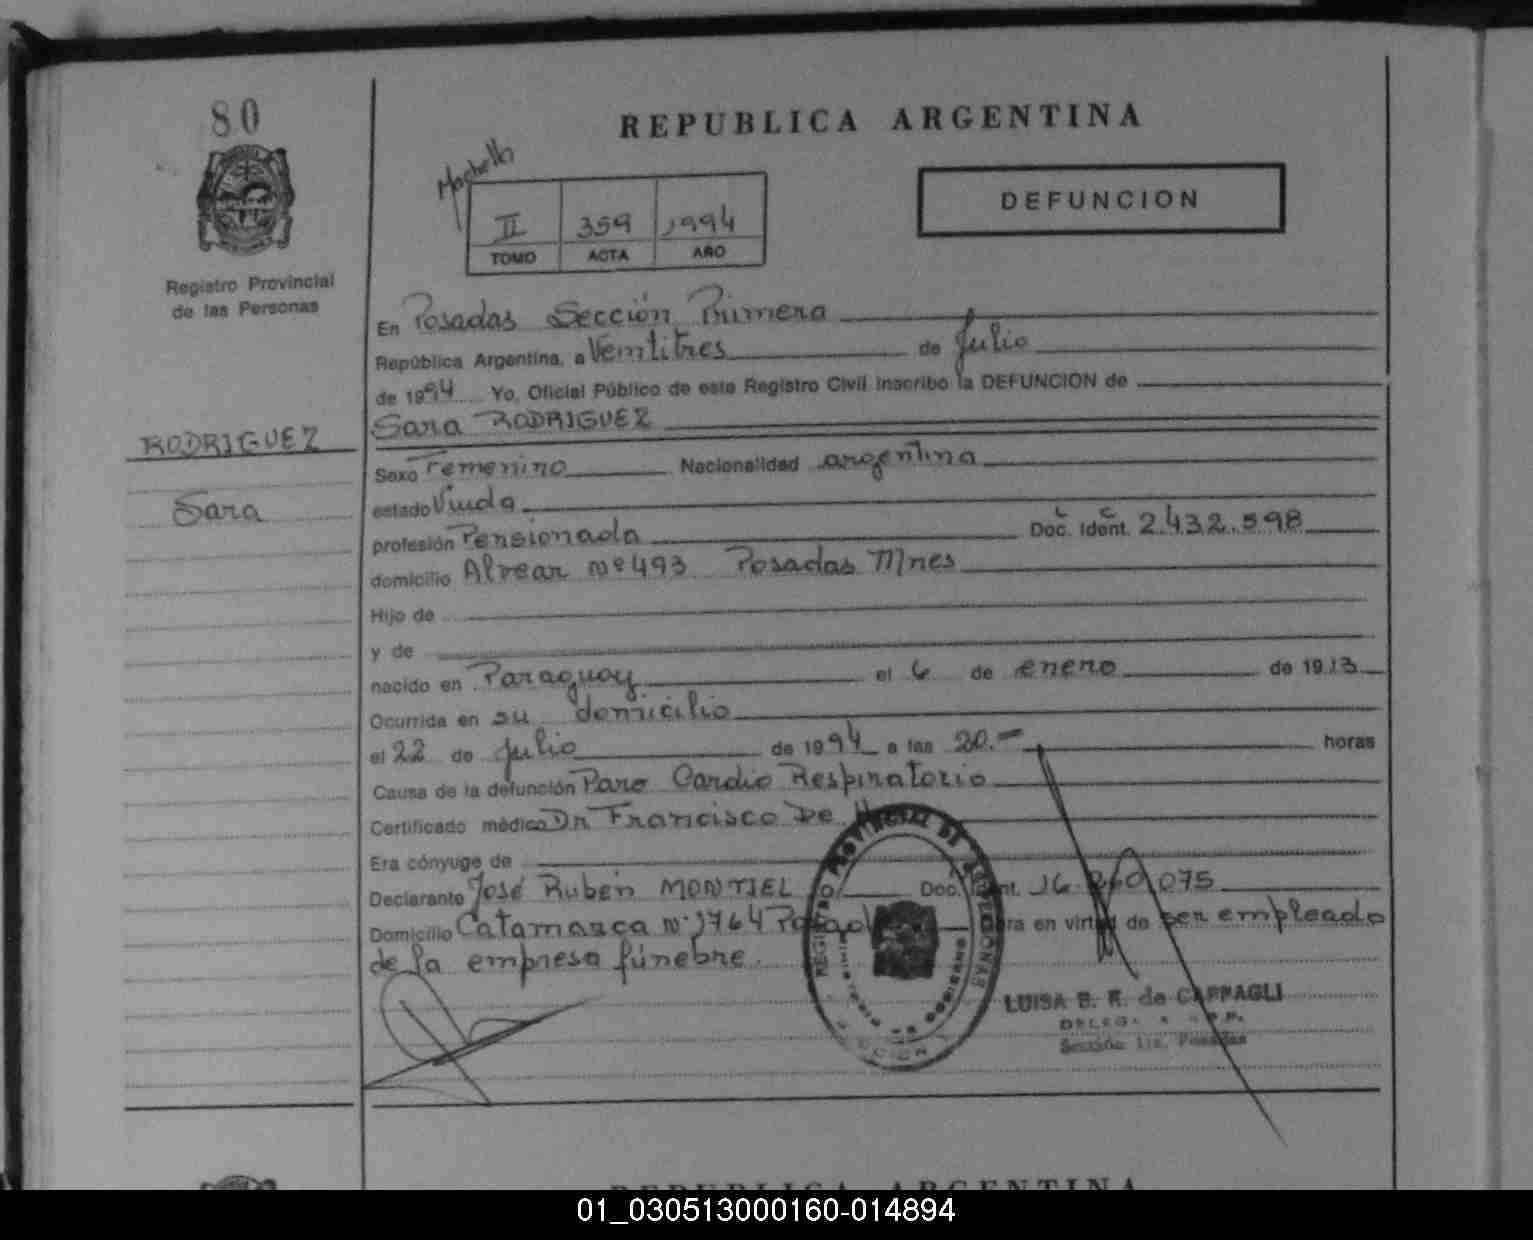 80
REPUBLICA ARGENTINA
DEFUNCION
II 359 1994
TOMO ACTA AÑO
Registro Provincial
de las Personas
En Posadas Sección Primera
República Argentina, a Ventitres de Julio
de 1994 Yo, Oficial Público de este Registro Civil inscribo la DEFUNCION de
RODRIGUEZ
Sara
Sara RODRIGUEZ
Sexo Femenino Nacionalidad argentina
estado Viuda
profesión Pensionada Doc. Ident. L C 2.432.598
domicilio Alvear Nº 493 Posadas Mnes
Hijo de
y de
nacido en Paraguay el 6 de enero de 1913
Ocurrida en su domicilio
el 22 de Julio de 1994 a las 20.- horas
Causa de la defunción Paro Cardio Respiratorio
Certificado médico Dr Francisco De
Era cónyuge de
Declarante José Ruben MONTIEL Doc. Ident. 16.260.075
Domicilio Catamarca Nº 1764 Posadas Obra en virtud de ser empleado
de la empresa fúnebre.
REGISTRO PROVINCIAL DE LAS PERSONAS
MINISTERIO DE GOBIERNO
LUISA B. R. de CAPPAGLI
Sección 1ra. Posadas
REPUBLICA ARGENTINA
01_030513000160-014894